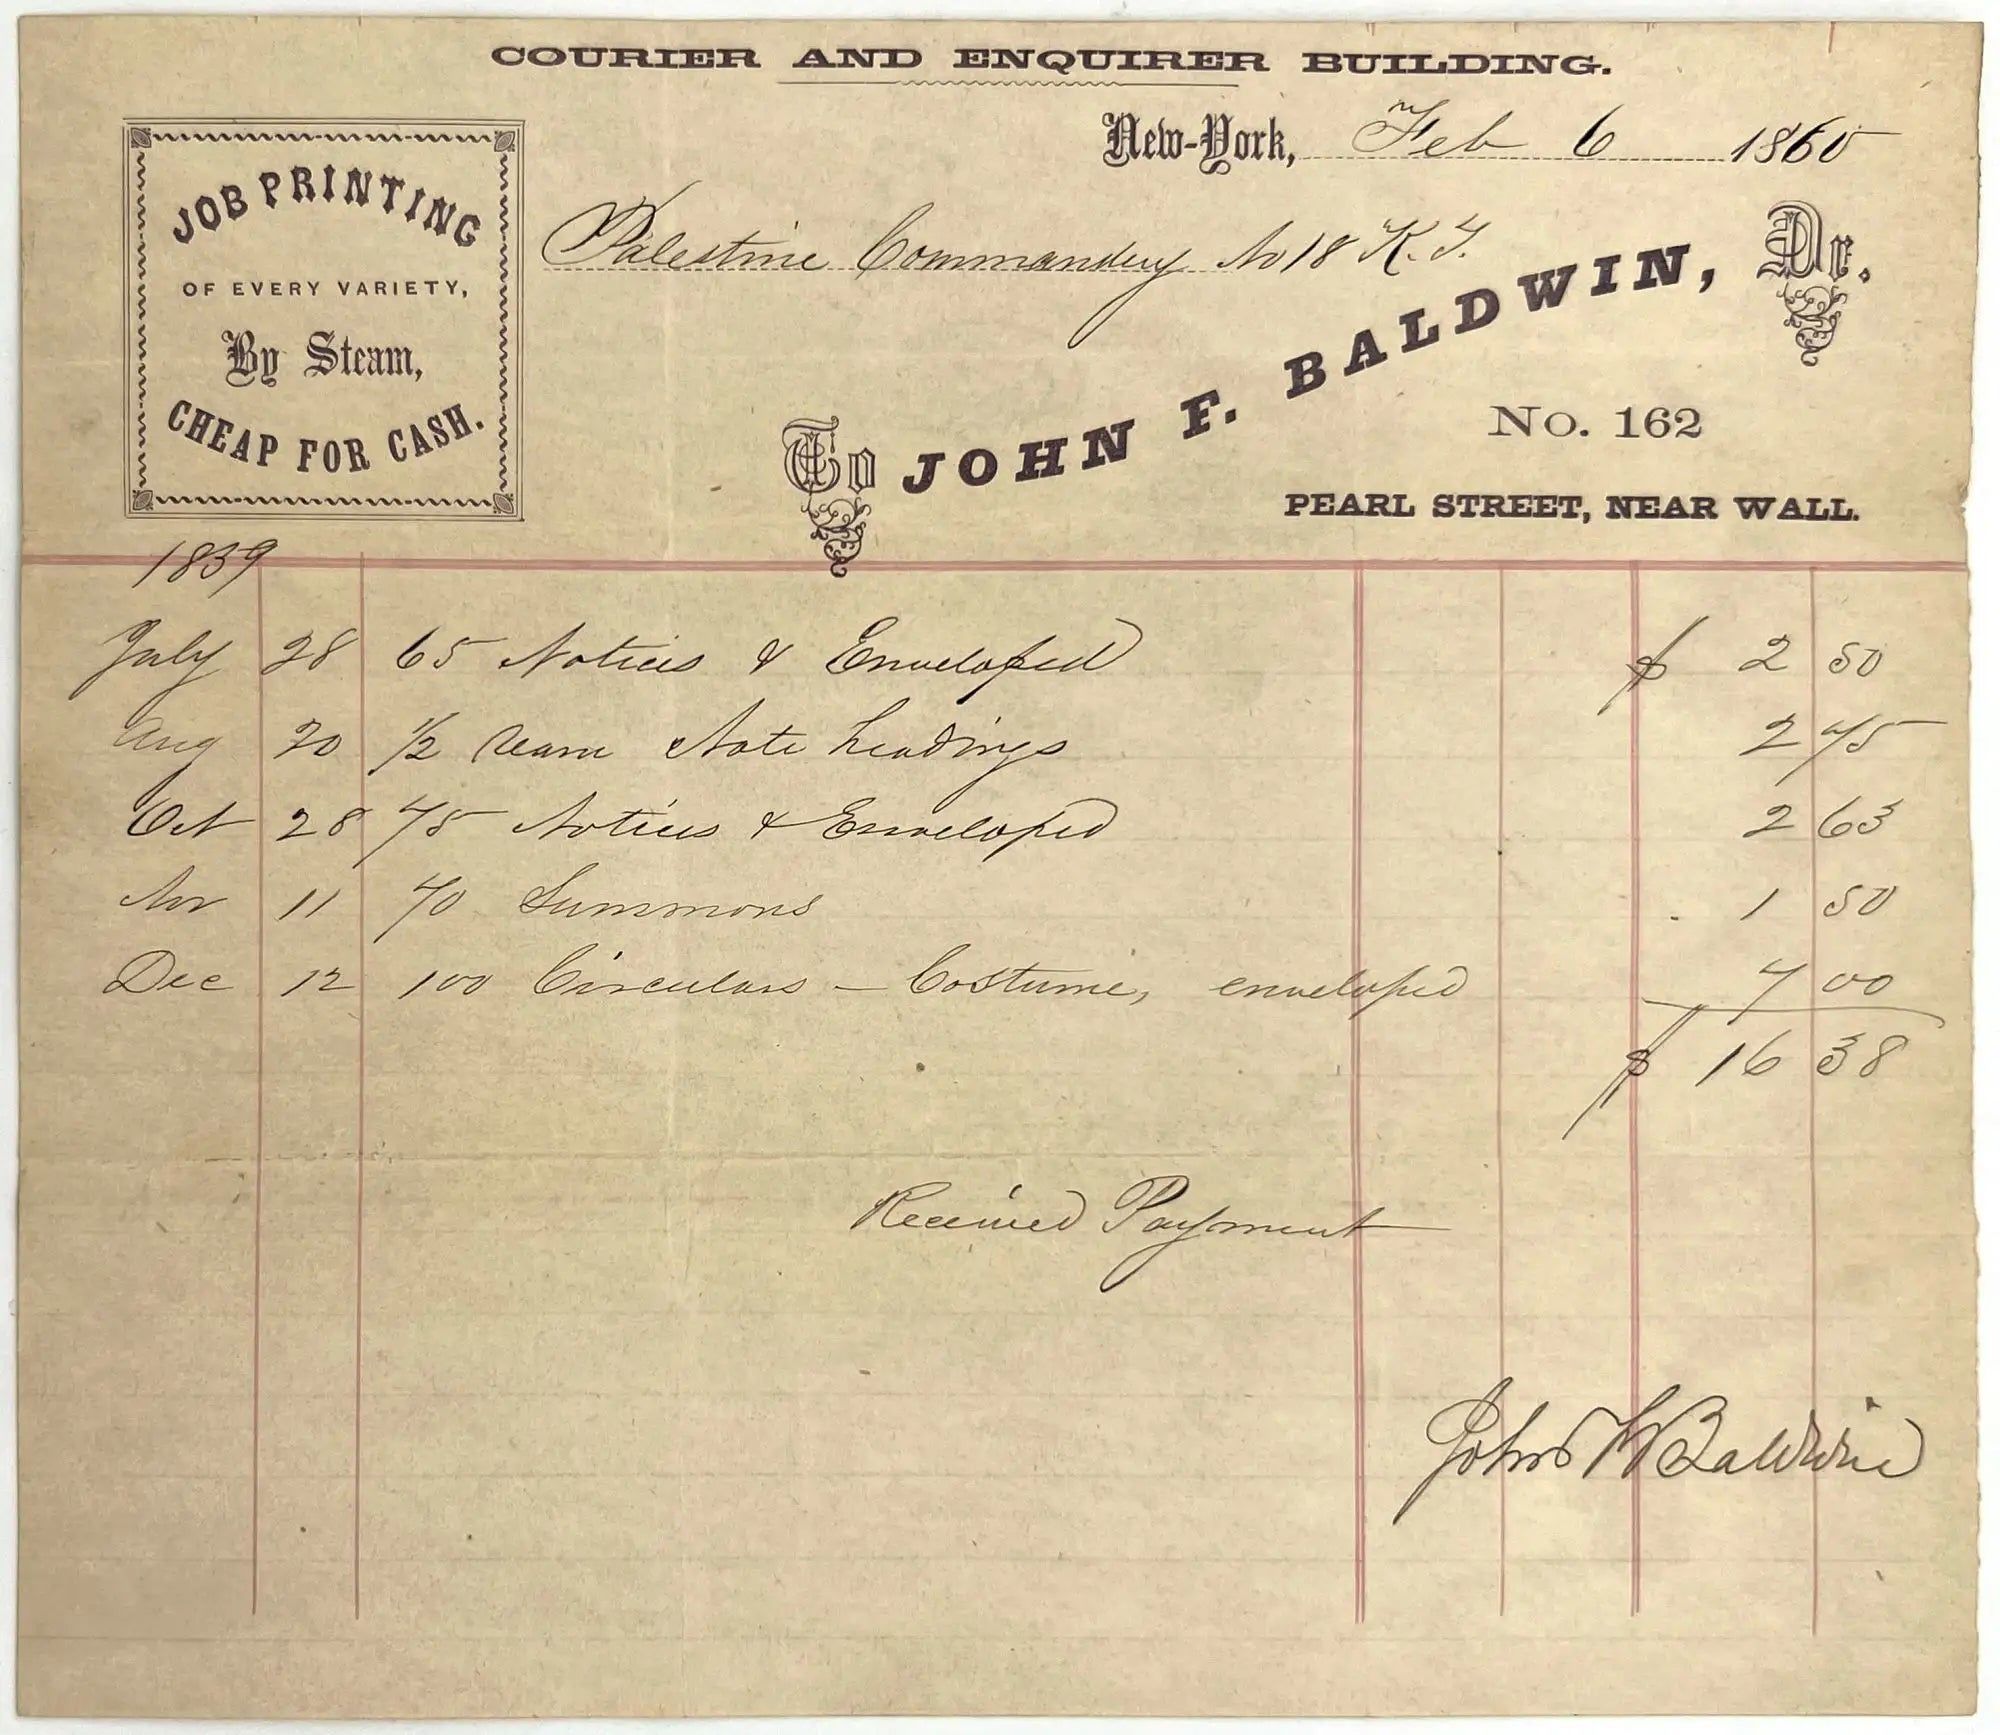 COURIER AND ENQUIRER BUILDING.
New-York, Feb 6 1860
JOB PRINTING
OF EVERY VARIETY,
By Steam,
CHEAP FOR CASH.
Palestine Commandery No 18 K. T.
To JOHN F. BALDWIN, Dr.
No. 162
PEARL STREET, NEAR WALL.
1859
July 28 65 Notices & Enveloped $ 2 50
Aug 20 1/2 ream Note headings 2 75
Oct 28 75 Notices & Enveloped 2 63
Nov 11 70 Summons 1 50
Dec 12 100 Circulars – Costume, enveloped 7 00
$ 16 38
Received Payment
John F Baldwin